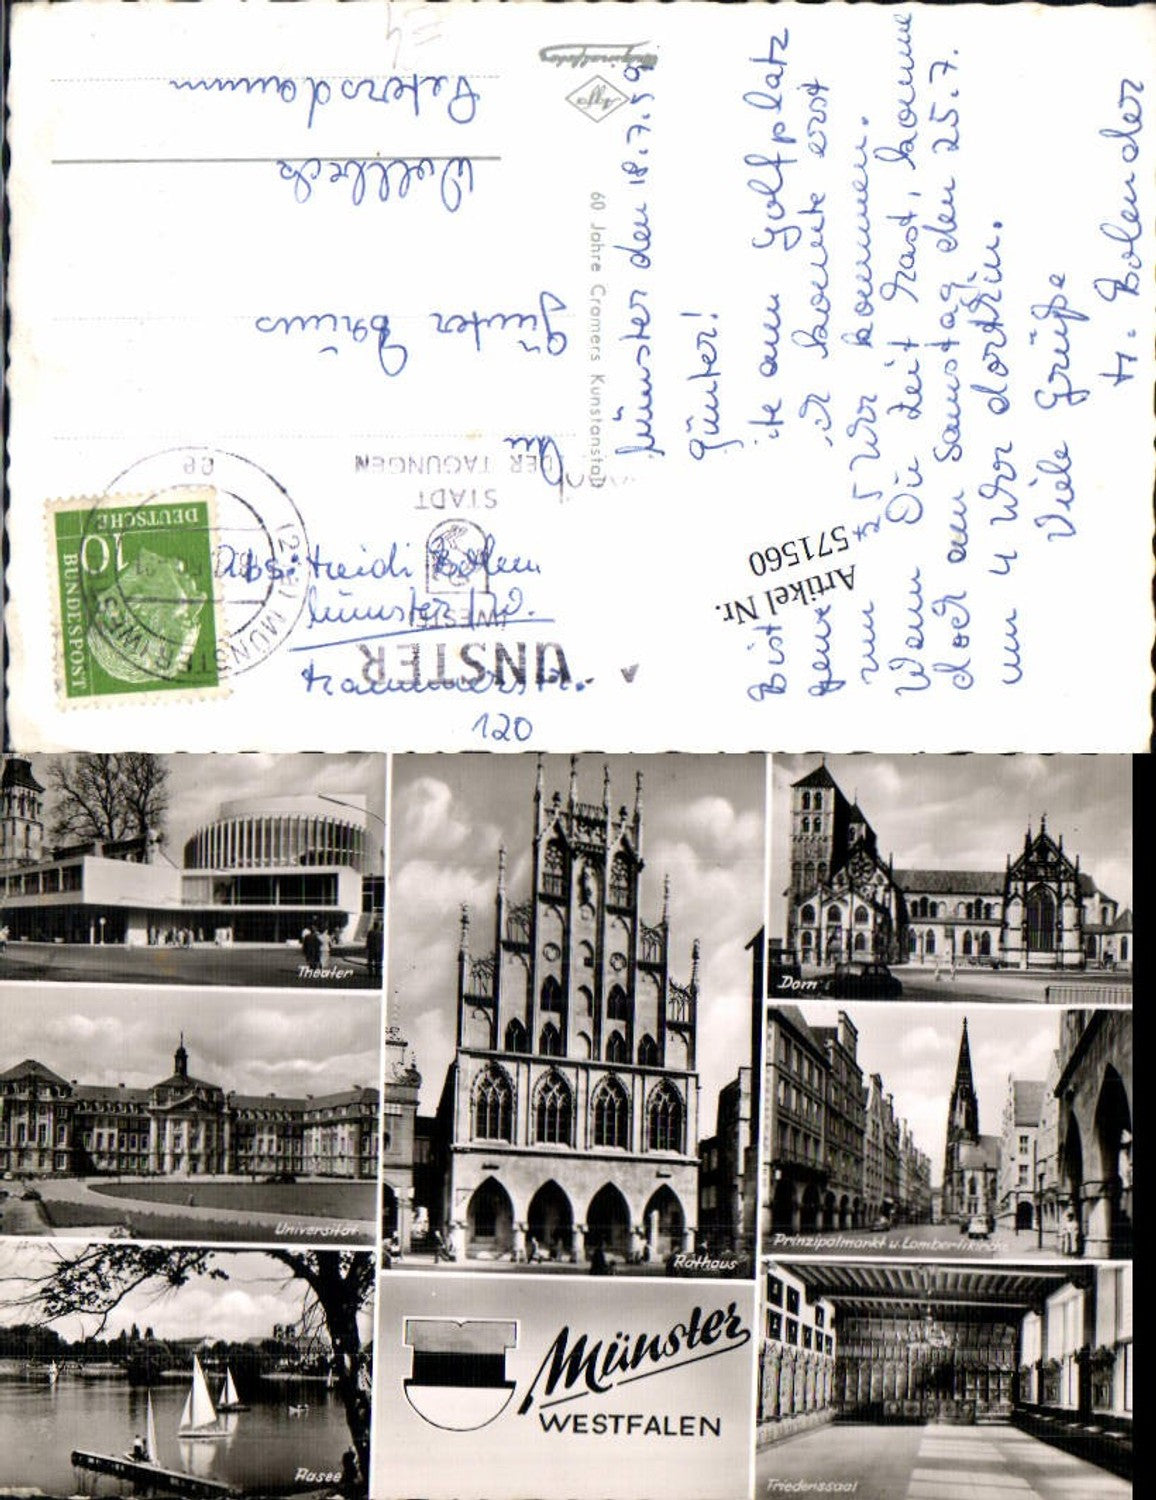 Münster den 18.7.59
Günter!
Bist am Golfplatz
konnte erst
um 5 Uhr kommen.
Wenn Du Zeit hast, komme
doch am Samstag den 25.7.
um 4 Uhr dorthin.
Viele Grüße
H. Bolender
Artikel Nr.
571560
60 Jahre Cramers Kunstanstalt
Agfa
An
Günter
Wolbeck
Petersdamm
Abs: Heidi
Münster
120
DEUTSCHE
BUNDESPOST
10
MÜNSTER (WESTF)
STADT
DER TAGUNGEN
Theater
Universität
Aasee
Rathaus
Münster
WESTFALEN
Dom
Prinzipalmarkt u. Lambertikirche
Friedenssaal